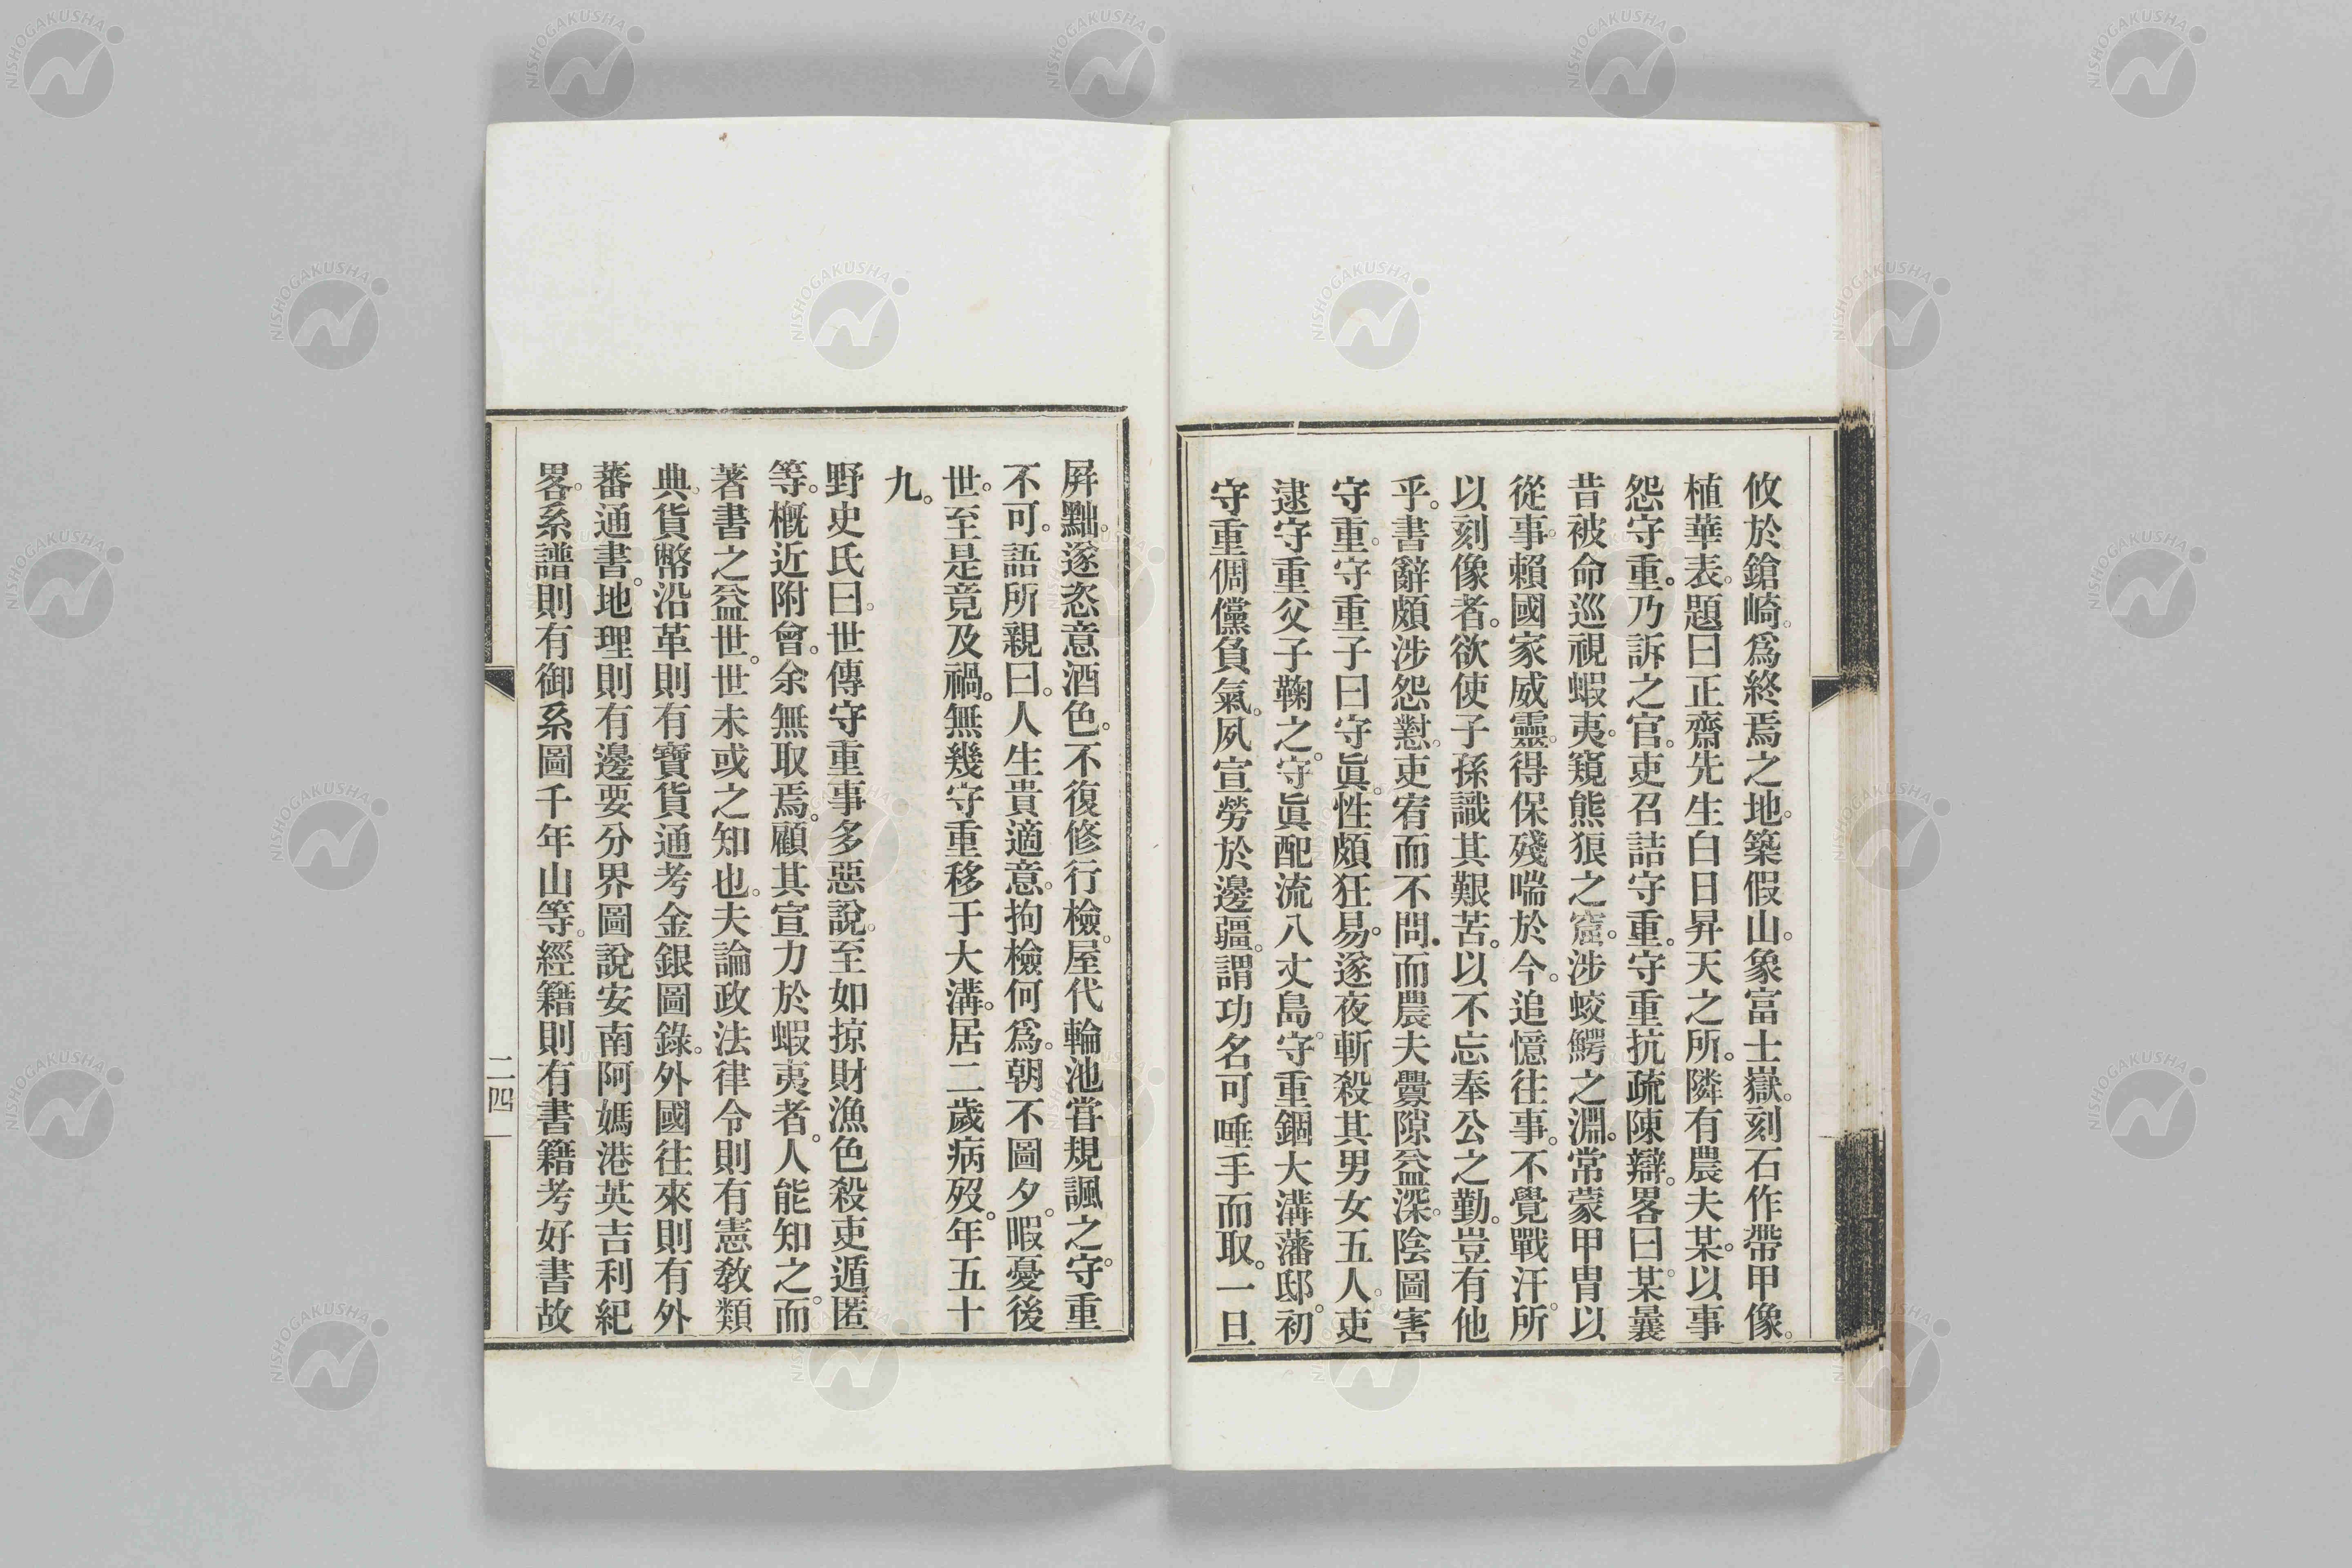 攸於鎗崎。爲終焉之地。築假山。象富士嶽。刻石作帶甲像。
植華表。題曰正齋先生白日昇天之所。隣有農夫某。以事
怨守重。乃訴之官。吏召詰守重。守重抗疏陳辯。畧曰。某曩
昔被命巡視蝦夷。窺熊狼之窟。涉蛟鰐之淵。常蒙甲冑以
從事。賴國家威靈。得保殘喘於今。追憶往事。不覺戰汗。所
以刻像者。欲使子孫識其艱苦。以不忘奉公之勤。豈有他
乎。書辭頗涉怨懟。吏宥而不問。而農夫釁隙益深。陰圖害
守重。守重子曰守眞。性頗狂易。遂夜斬殺其男女五人。吏
逮守重父子鞠之。守眞配流八丈島。守重錮大溝藩邸。初
守重倜儻負氣。夙宣勞於邊疆。謂功名可唾手而取。一旦
屛黜。遂恣意酒色。不復修行檢。屋代輪池嘗規諷之。守重
不可。語所親曰。人生貴適意。拘檢何爲。朝不圖夕。暇憂後
世。至是竟及禍。無幾守重移于大溝。居二歲病歿。年五十
九。
野史氏曰。世傳守重事多惡說。至如掠財漁色殺吏遁匿
等。概近附會。余無取焉。顧其宣力於蝦夷者。人能知之。而
著書之益世。世未或之知也。夫論政法律令則有憲敎類
典。貨幣沿革則有寶貨通考金銀圖錄。外國往來則有外
蕃通書。地理則有邊要分界圖說安南阿媽港英吉利紀
畧。系譜則有御系圖千年山等。經籍則有書籍考好書故
二四
NISHOGAKUSHA